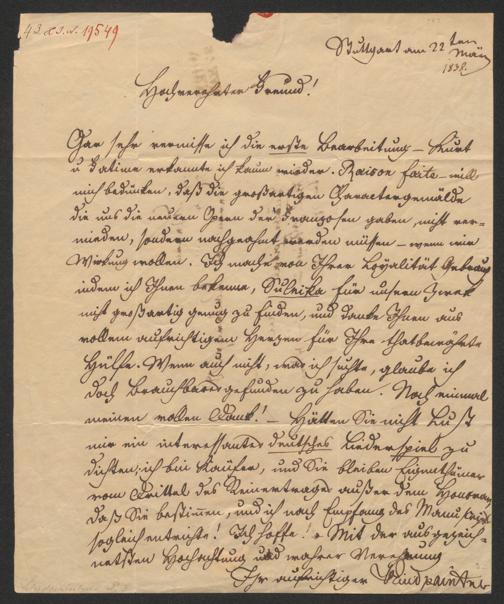 43. 19549
Stuttgart am 22ten
März
1838.
Hochverehrter Freund!
Gar sehr vermisse ich die erste Bearbeitung – Kurt
u Katime erkannte ich kaum wieder. Raison faite – will
mich bedünken, daß die großartigen Charactergemälde
die uns die neuern Opern der Franzosen gaben, nicht ver-
mieden, sondern nachgeahmt werden müssen – wenn wir
Wirkung wollen. Ich mache von Ihrer Loyalität Gebrauch
indem ich Ihnen bekenne, Suleika für unsern Zweck
nicht großartig genug zu finden, und danke Ihnen aus
vollem aufrichtigem Herzen für Ihre thatbewährte
Hülfe. Wenn auch nicht, was ich suchte, glaube ich
doch Brauchbares gefunden zu haben. Noch einmal
meinen vollen Dank! – Hätten Sie nicht Lust
mir ein interessantes deutsches Liederspiel zu
dichten; ich bin Käufer, und Sie bleiben Eigenthümer
vom Drittel des Reinertrages außer dem Honorar,
daß Sie bestimmen, und ich nach Empfang des Manuskripts
sogleich entrichte! Ich hoffe! – Mit der ausgezeich-
netsten Hochachtung und wahrer Verehrung
Ihr aufrichtiger Lindpaintner